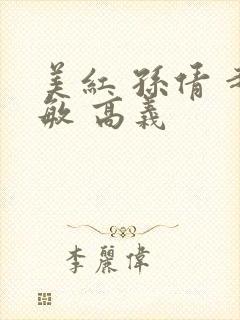 美红 孫倩
敏 高義
李麗偉